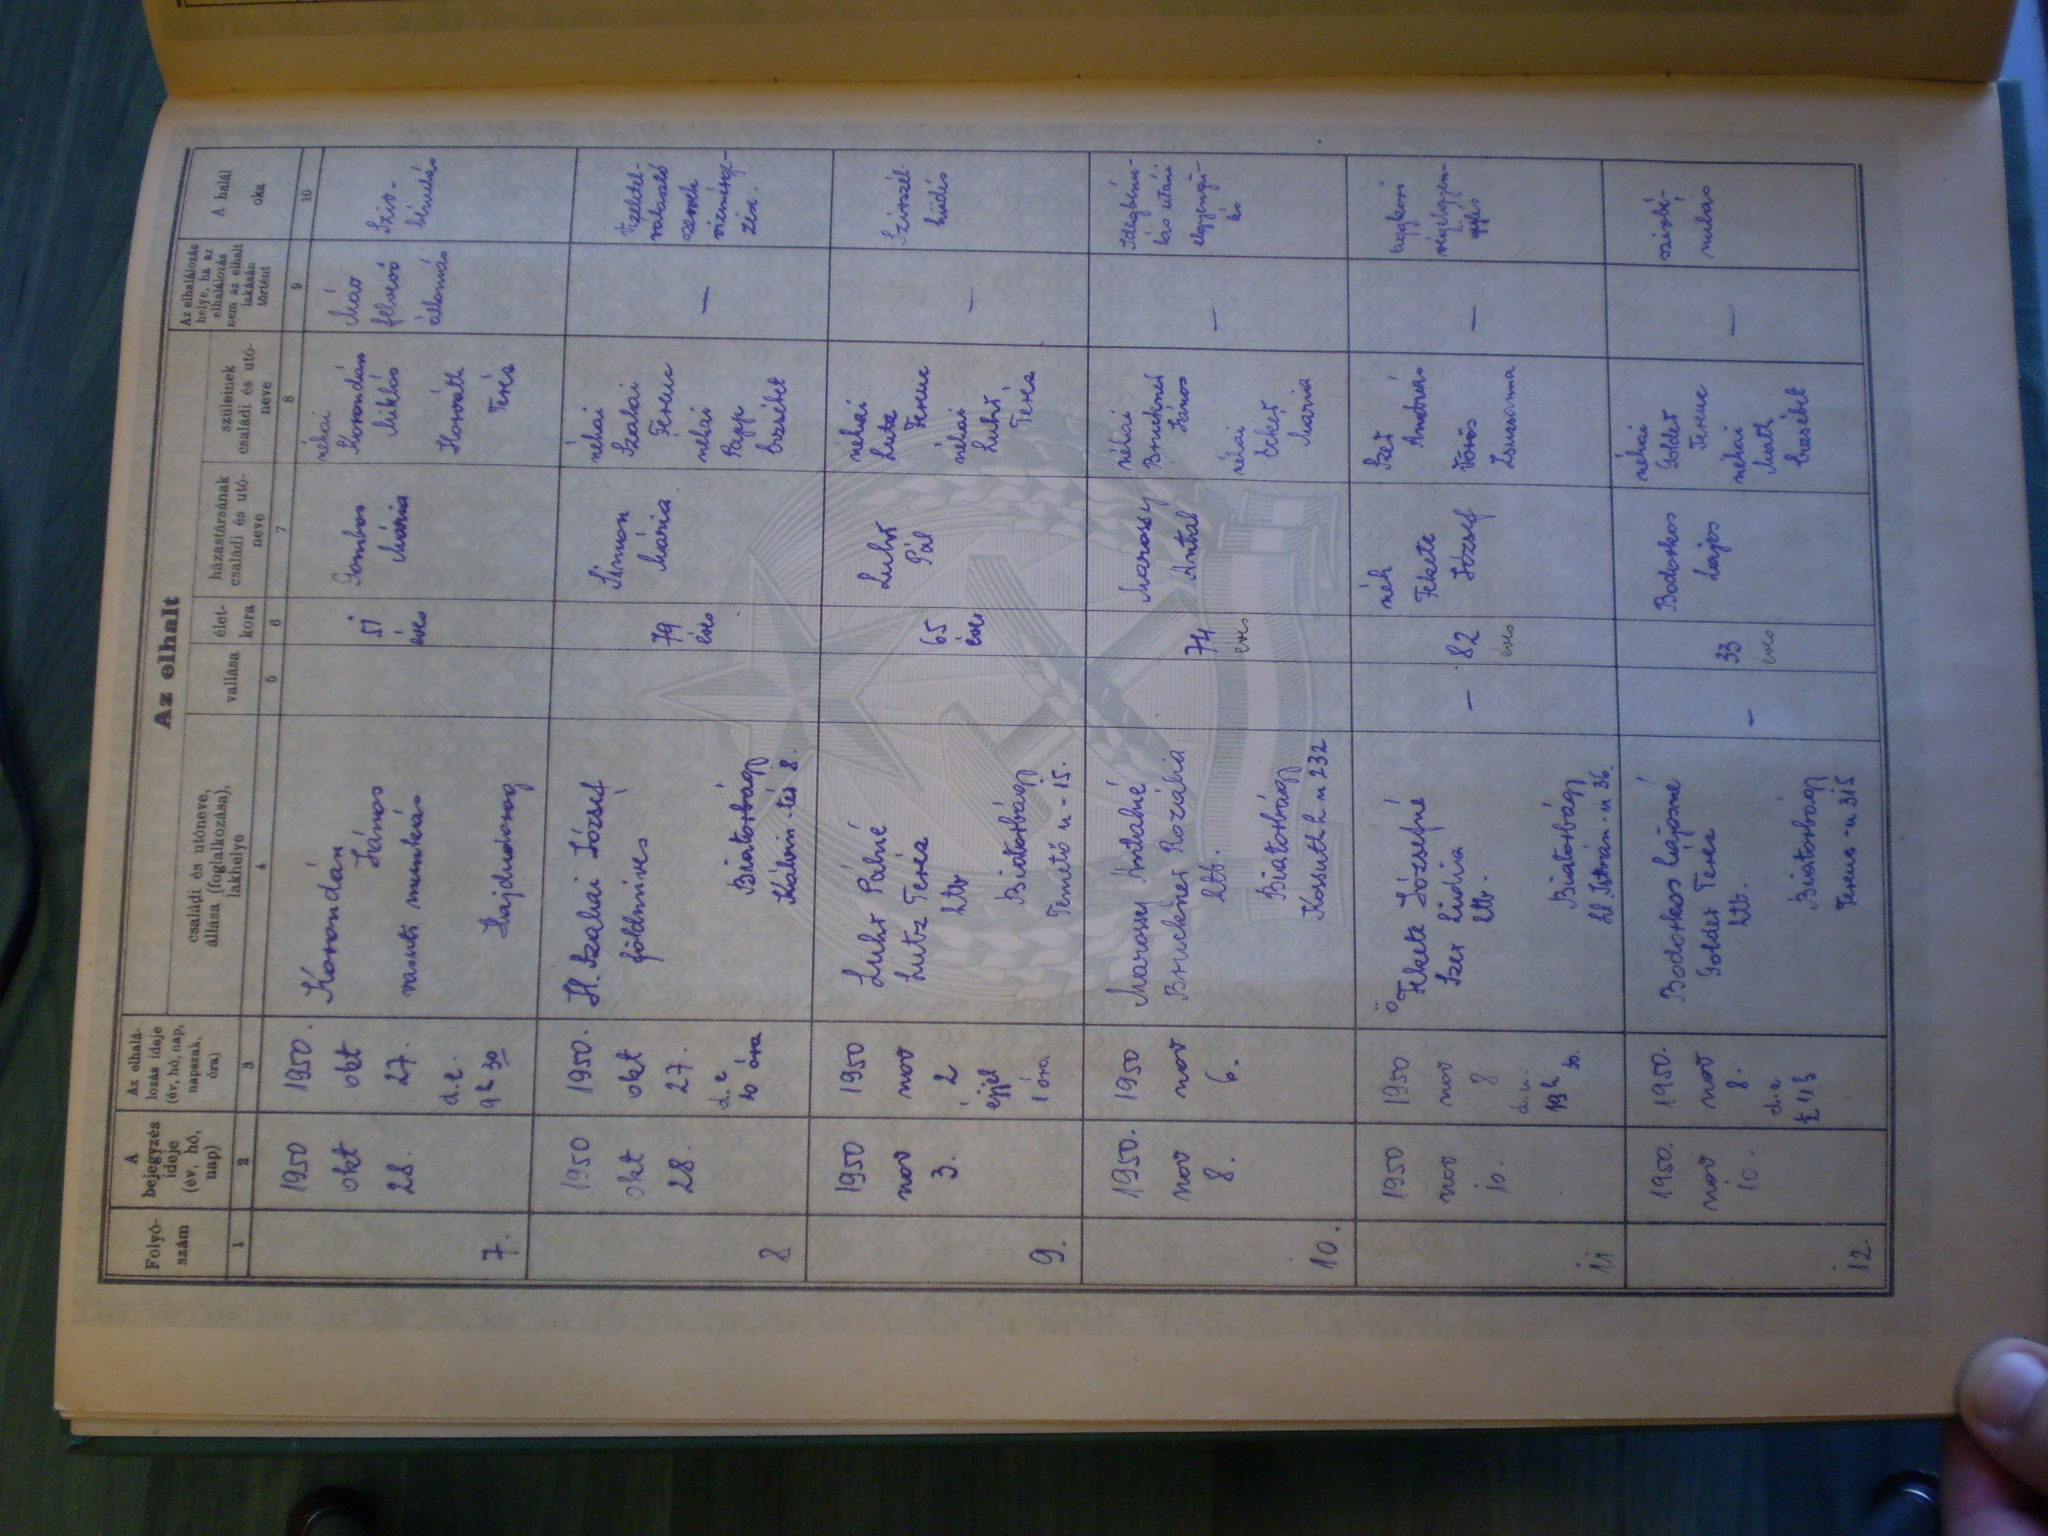 Az elhalt
Folyó-
szám
A
bejegyzés
ideje
(év, hó,
nap)
Az elhalá-
lozás ideje
(év, hó, nap,
napszak,
óra)
családi és utóneve,
állása (foglalkozása),
lakhelye
vallása
élet-
kora
házastársának
családi és utó-
neve
szüleinek
családi és utó-
neve
Az elhalálozás
helye, ha az
elhalálozás
nem az elhalt
lakásán
történt
A halál
oka
1
2
3
4
5
6
7
8
9
10
7.
1950
okt
28.
1950.
okt
27.
d.e.
9 h 30
Korondán
János
vasuti munkás
Hajdudorog
51
éves
Gombos
Mária
néhai
Korondán
Miklós
Horváth
Teréz
Máv
felvevő
állomás
Sziv-
bénulás
8
1950
okt
28.
1950.
okt
27.
d.e
10 óra
H. Szabai József
földmives
Biatorbágy
Kálvin-tér 8.
79
éves
Simon
Mária
néhai
Szabai
Ferenc
néhai
Papp
Erzsébet
—
Vizeletel-
választó
szervek
vizmérge-
zése.
9.
1950
nov
3.
1950
nov
2
éjjel
1 óra
Luht Pálné
Lutz Teréz
htb
Biatorbágy
Temető u-15.
65
éves
Luht
Pál
néhai
Lutz
Ferenc
néhai
Luht
Teréz
—
Szivszél-
hüdés
10.
1950.
nov
8.
1950
nov
6.
Marossy Antalné
Bruckner Rozália
htb.
Biatorbágy
Kossuth L u 232
74
éves
Marossy
Antal
néhai
Bruckner
János
néhai
Ecker
Mária
—
Idegbénu-
lás utáni
elgyengü-
lés
11
1950
nov
10.
1950
nov
8
d.u.
19 h
30.
Ö
Fekete Józsefné
Szer Lidia
htb.
Biatorbágy
Szt. István-u 36.
—
82
éves
néh
Fekete
József
Szer
András
Vörös
Zsuzsanna
—
aggkori
végelgyen-
gülés
12.
1950.
nov
10.
1950.
nov
8.
d.e
½ 11 h
Bodorkos Lajosné
Golder Teréz
htb.
Biatorbágy
Ferenc-u 315
—
33
éves
Bodorkos
Lajos
néhai
Golder
Ferenc
néhai
Math
Erzsébet
—
szivbé-
nulás